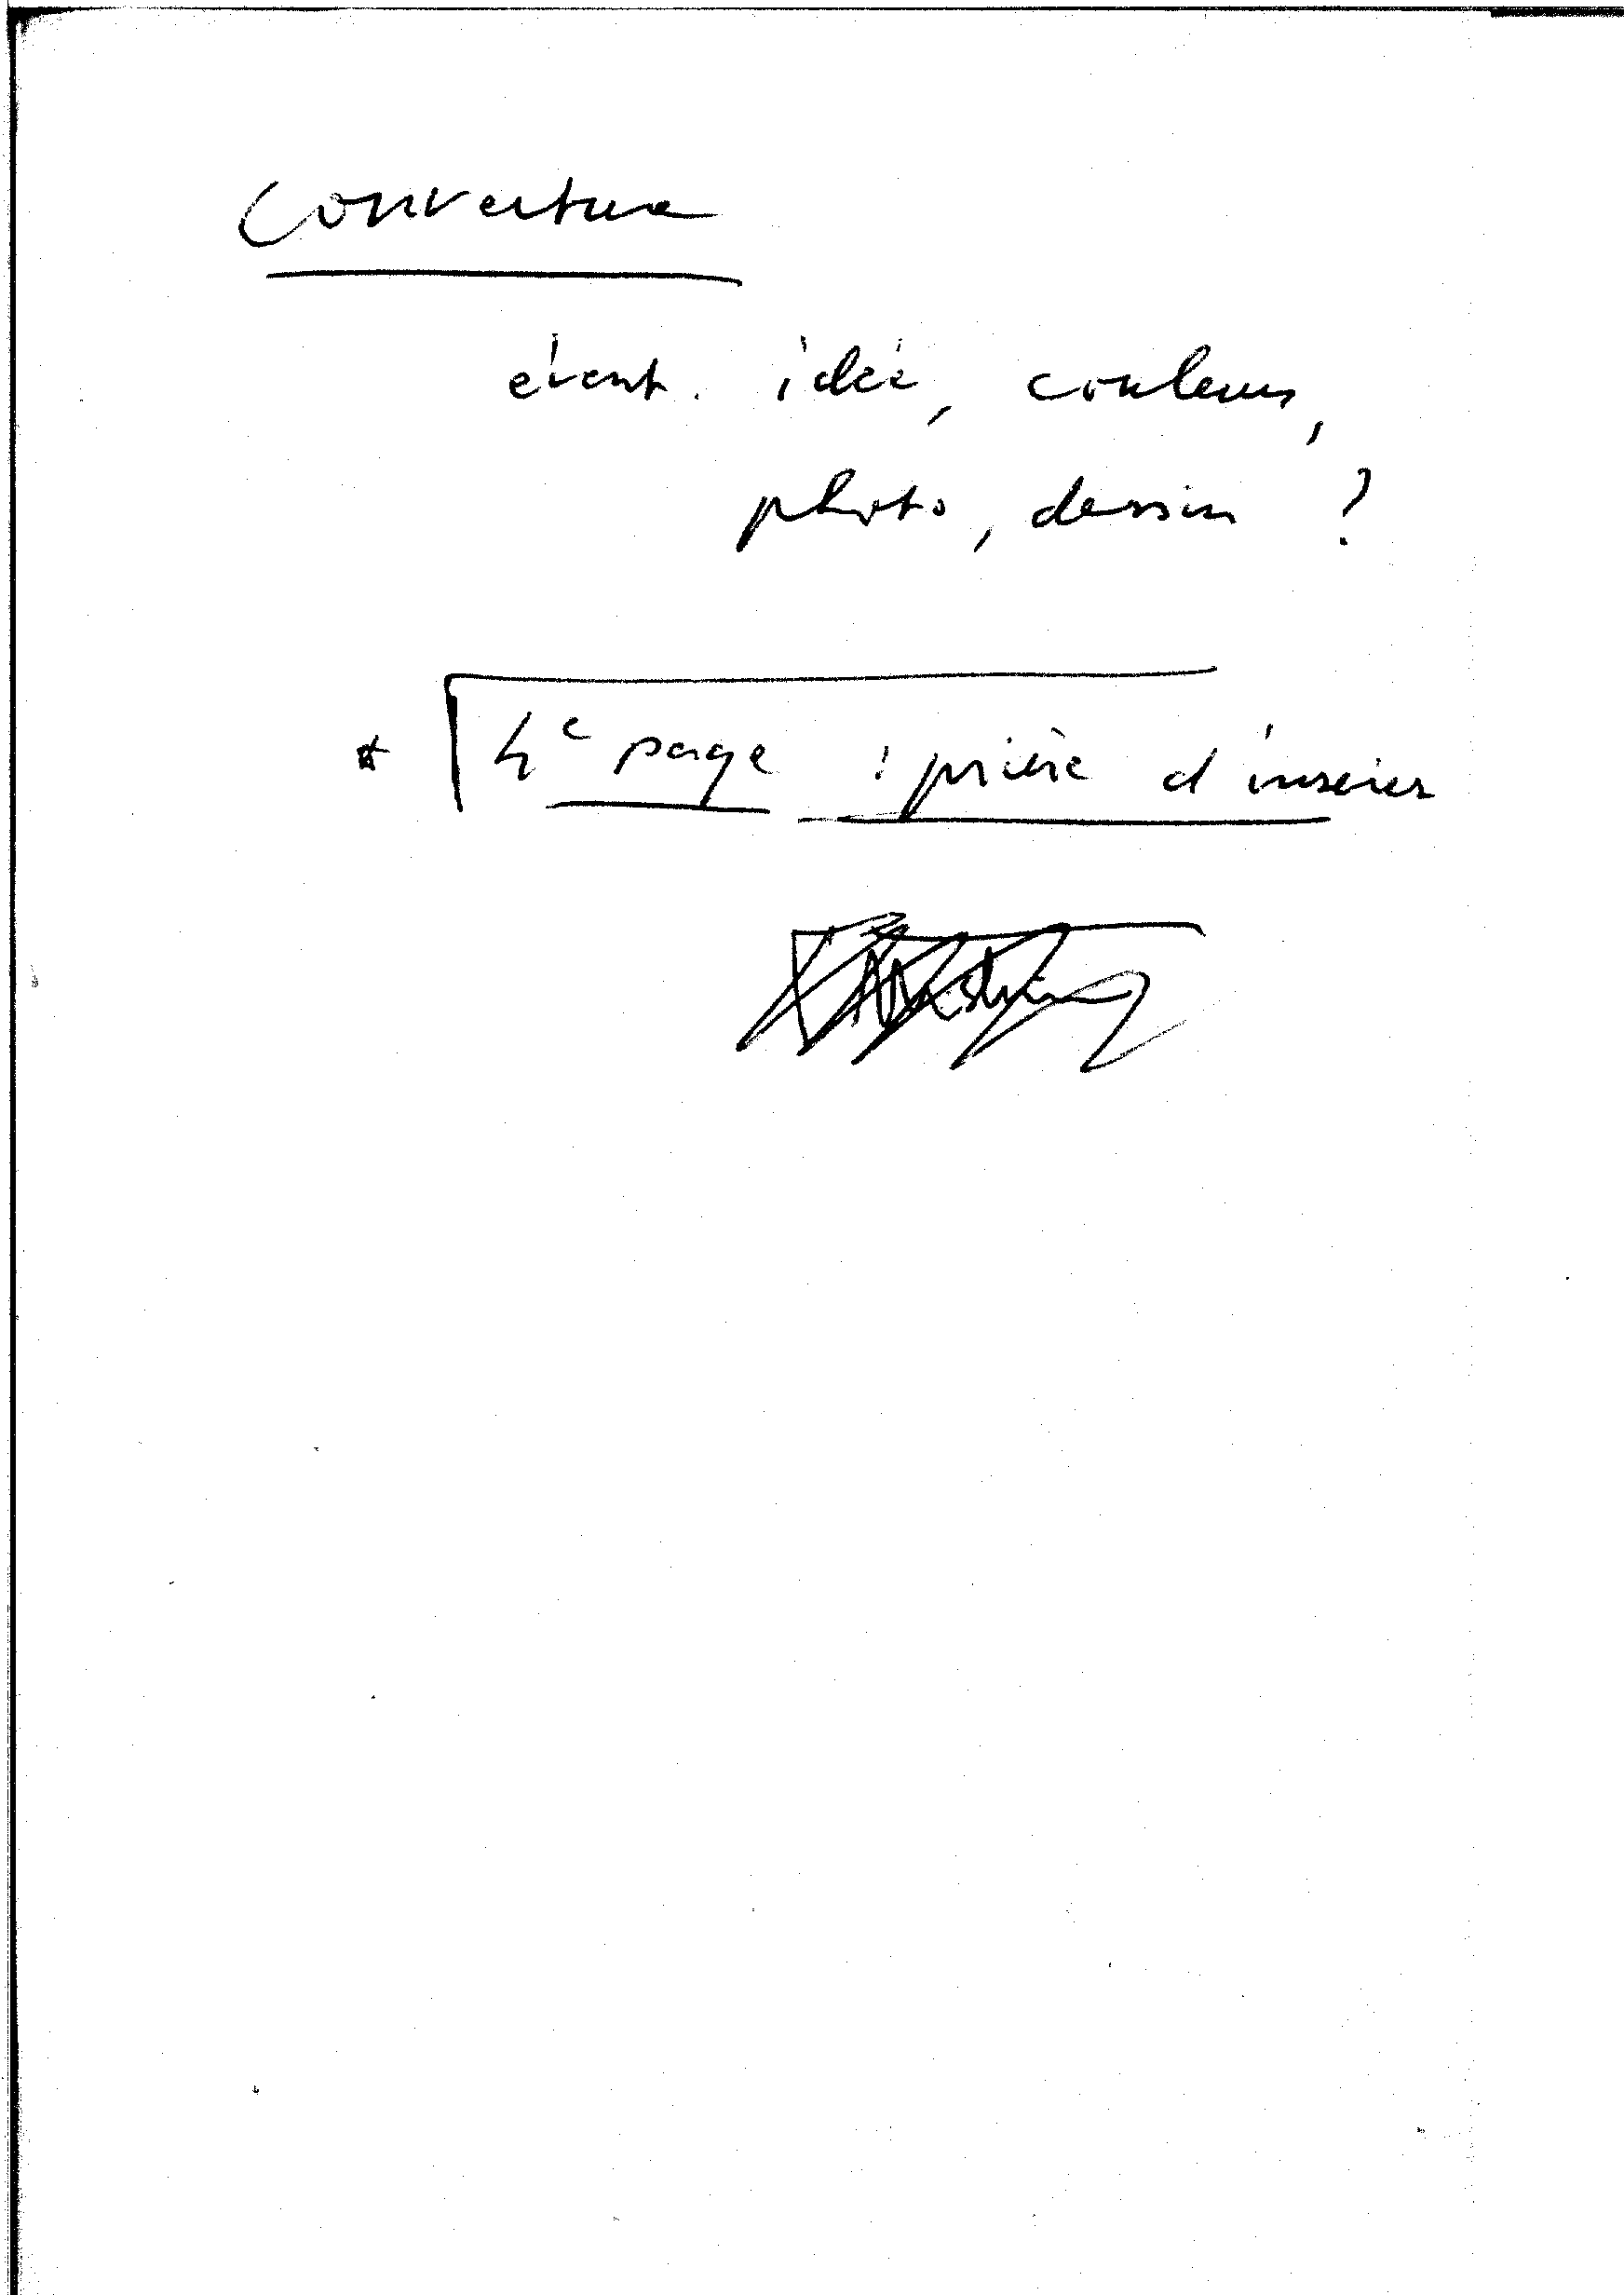 Couverture
évent. idée, couleurs,
photo, dessin ?
* 4e page : prière d'insérer